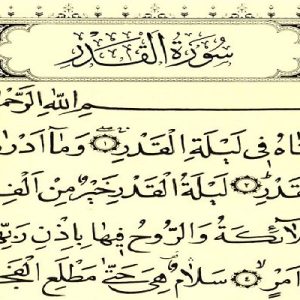 سُورَةُ الْقَدْرِ
ـمِ اللّٰهِ الرَّحْمٰـ
ـنَاهُ فِي لَيْلَةِ الْقَدْرِ ۝١ وَمَا أَدْرٰ
ـقَدْرِ ۝٢ لَيْلَةُ الْقَدْرِ خَيْرٌ مِنْ أَلْفِ
ـلَائِكَةُ وَالرُّوحُ فِيهَا بِإِذْنِ رَبِّهِـ
أَمْرٍ ۝٤ سَلَامٌ هِيَ حَتّٰى مَطْلَعِ الْفَجْـ